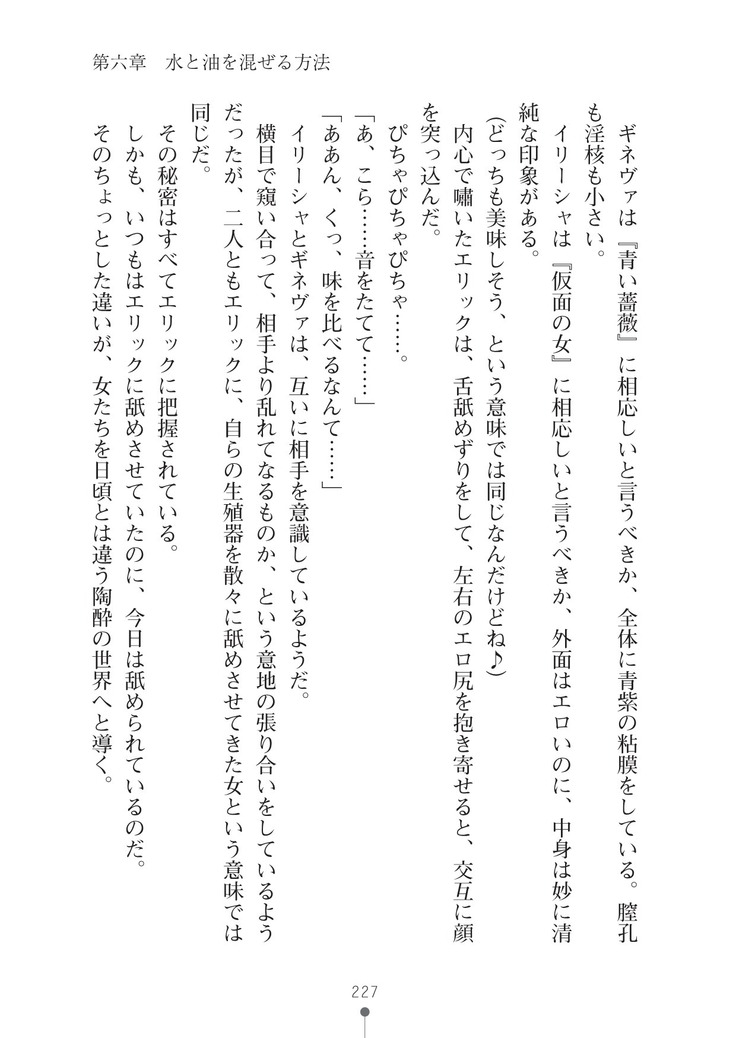 第六章　水と油を混ぜる方法
　ギネヴァは『青い薔薇』に相応しいと言うべきか、全体に青紫の粘膜をしている。膣孔
も淫核も小さい。
　イリーシャは『仮面の女』に相応しいと言うべきか、外面はエロいのに、中身は妙に清
純な印象がある。
（どっちも美味しそう、という意味では同じなんだけどね♪）
　内心で嘯いたエリックは、舌舐めずりをして、左右のエロ尻を抱き寄せると、交互に顔
を突っ込んだ。
　ぴちゃぴちゃぴちゃ……。
「あ、こら……音をたてて……」
「ああん、くっ、味を比べるなんて……」
　イリーシャとギネヴァは、互いに相手を意識しているようだ。
　横目で窺い合って、相手より乱れてなるものか、という意地の張り合いをしているよう
だったが、二人ともエリックに、自らの生殖器を散々に舐めさせてきた女という意味では
同じだ。
　その秘密はすべてエリックに把握されている。
　しかも、いつもはエリックに舐めさせていたのに、今日は舐められているのだ。
　そのちょっとした違いが、女たちを日頃とは違う陶酔の世界へと導く。
227